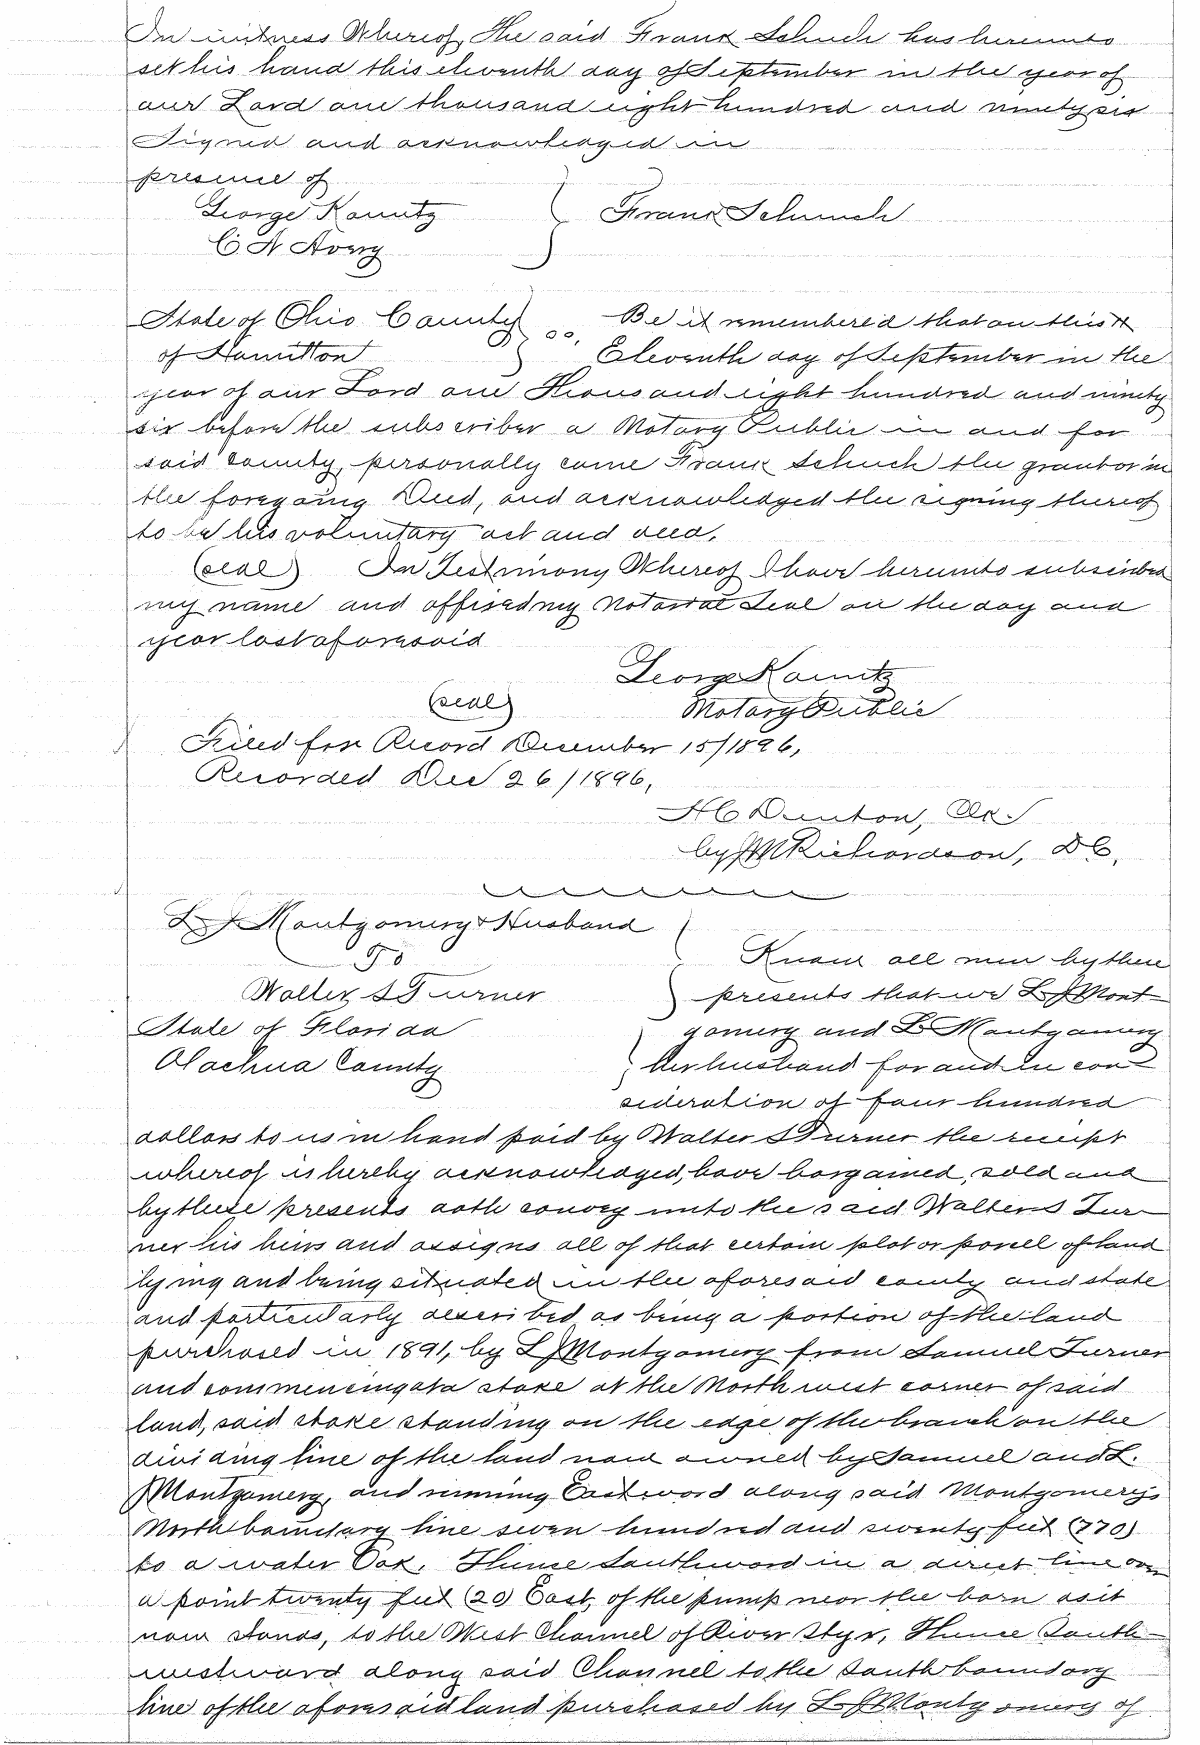 In witness Whereof, The said Frank Schuch has hereunto
set his hand this eleventh day of September in the year of
our Lord one thousand eight hundred and ninety six
Signed and acknowledged in
presence of
George Kountz
C A Avery
Frank Schuch
State of Ohio County
of Hamilton
ss, Be it remembered that on this
Eleventh day of September in the
year of our Lord one Thousand eight hundred and ninety
six before the subscriber a Notary Public in and for
said County, personally came Frank Schuch the grantor in
the foregoing Deed, and acknowledged the signing thereof
to be his voluntary act and deed.
(seal) In Testimony Whereof I have hereunto subscribed
my name and affixed my Notarial Seal on the day and
year last aforesaid
George Kountz
(seal) Notary Public
Filed for Record December 15/1896,
Recorded Dec 26/1896,
H C Denton, Clk.
by J M Richardson, D C,
L J Montgomery & Husband
To
Walter S Turner
State of Florida
Alachua County
Know all men by these
presents that we L J Mont-
gomery and L Montgomery
her husband for and in con-
sideration of four hundred
dollars to us in hand paid by Walter S Turner the receipt
whereof is hereby acknowledged, have bargained, sold and
by these presents doth convey unto the said Walter S Tur-
ner his heirs and assigns all of that certain plot or parcel of land
lying and being situated in the aforesaid county and state
and particularly described as being a portion of the land
purchased in 1891, by L J Montgomery from Samuel Turner
and commencing at a stake at the North west corner of said
land, said stake standing on the edge of the branch on the
dividing line of the land now owned by Samuel and L.
J Montgomery, and running Eastward along said Montgomery's
North boundary line seven hundred and seventy feet (770)
to a water Oak. Thence Southward in a direct line over
a point twenty feet (20) East, of the pump near the barn as it
now stands, to the West Channel of River Styx, Thence South-
westward along said Channel to the South boundary
line of the aforesaid land purchased by L J Montgomery of